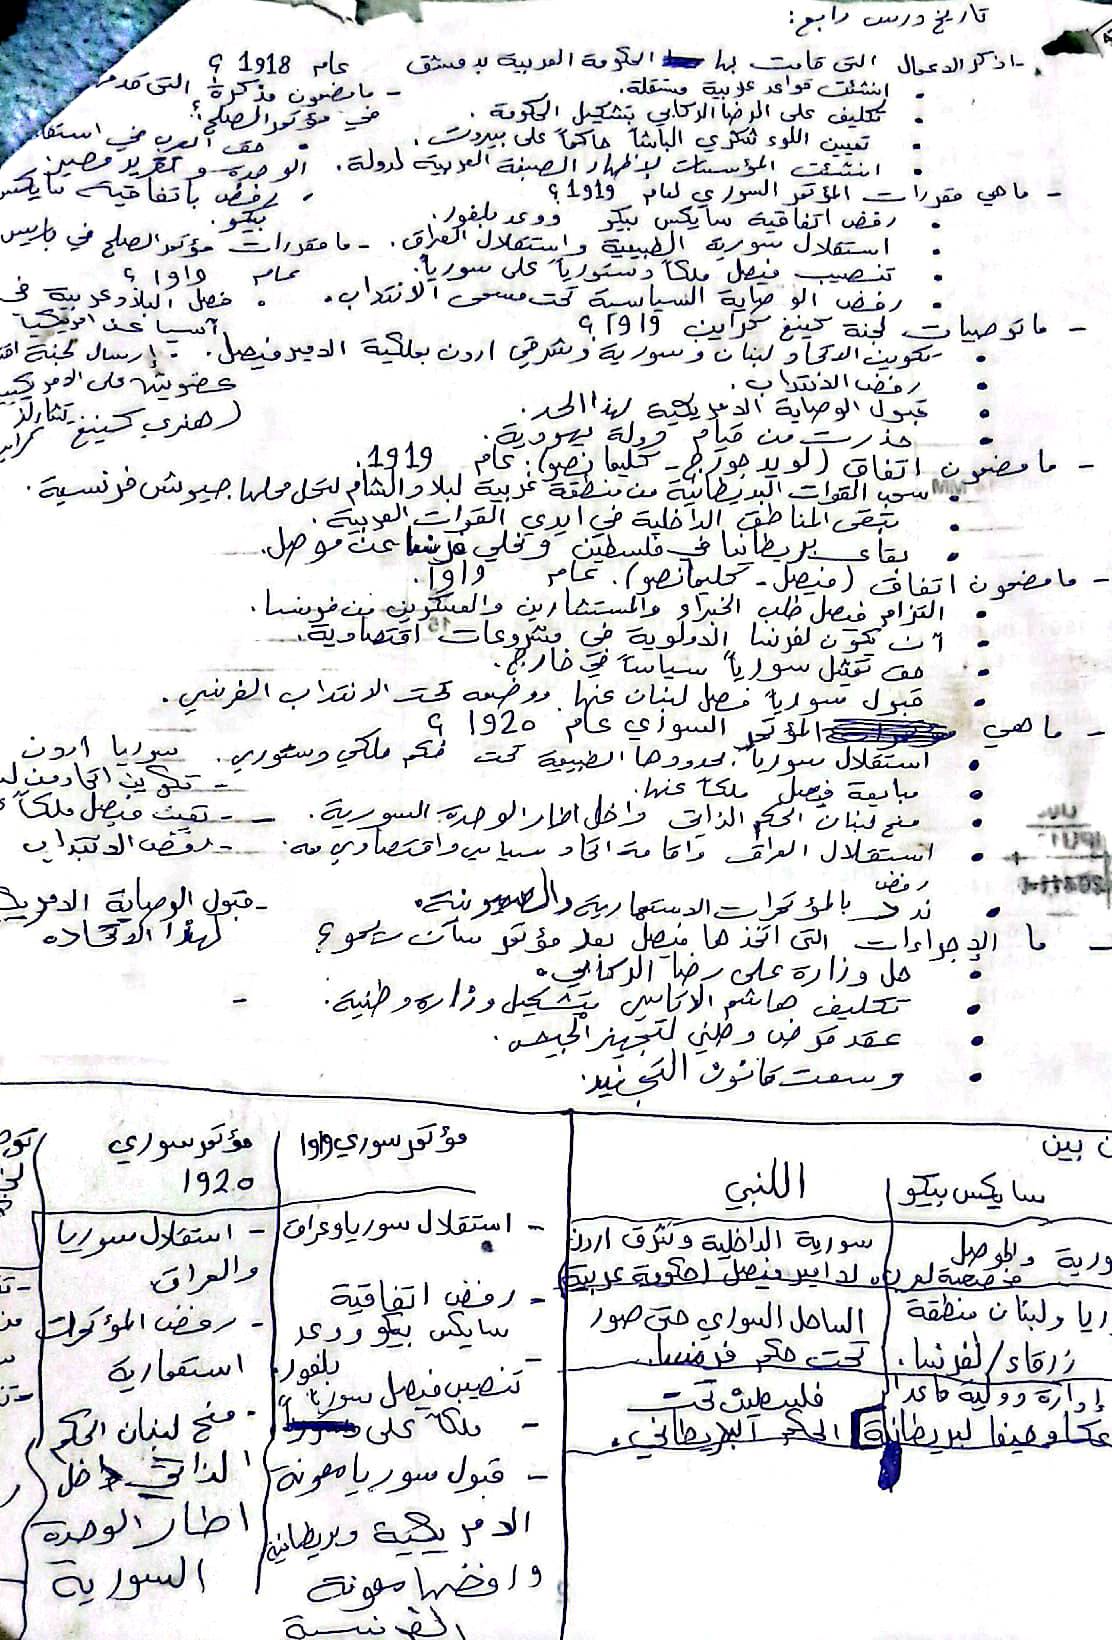 تاريخ درس رابع:
- اذكر الاعمال التي قامت بها الحكومة العربية بدمشق عام 1918 ؟
• انشئت قواعد عربية مستقلة.
• تكليف علي الرضا الركابي بتشكيل الحكومة.
• تعيين اللوء شكري الباشا حاكماً على بيروت.
• انشئت المؤسسات لإظهار الصبغة العربية لدولة.
- ما مضمون مذكرة التي قدمها
في مؤتمر الصلح؟
• حق العرب في استقلا
الوحدة و تقرير مصير
• رفض باتفاقية سايكس
بيكو.
- ما هي مقررات المؤتمر السوري لعام 1919 ؟
• رفض اتفاقية سايكس بيكو ووعد بلفور.
• استقلال سورية الطبيعية واستقلال العراق.
• تنصيب فيصل ملكاً دستورياً على سورياً.
• رفض الوصاية السياسية تحت مسمى الانتداب.
- ما مقررات مؤتمر الصلح في باريس
عام 1919 ؟
• فصل البلاد عربية في
آسيا عن
• إرسال لجنة
عضويتها على الامريكيين
(هنري كينغ تشارلز
- ما توصيات لجنة كينغ كراين 1919 ؟
• تكوين اتحاد لبنان وسورية وشرقي اردن بملكية الامير فيصل.
• رفض الانتداب.
• قبول الوصاية الامريكية لهذا الحد.
• حذرت من قيام دولة يهودية.
- ما مضمون اتفاق (لويد جورج - كليمانصو). عام 1919.
• سحب القوات البريطانية من منطقة عربية لبلاد الشام لتحل محلها جيوش فرنسية.
• تبقى المناطق الداخلية في ايدي القوات العربية.
• بقاء بريطانيا في فلسطين وتخلي فرنسا عن موصل.
- ما مضمون اتفاق (فيصل - كليمانصو). عام 1919.
• التزام فيصل طلب الخبراء والمستشارين والعسكرين من فرنسا.
• أن تكون لفرنسا الاولوية في مشروعات اقتصادية.
• حق تمثيل سورياً سياسياً في خارج.
• قبول سورياً فصل لبنان عنها ووضعه تحت الانتداب الفرنسي.
- ما هي المؤتمر السوري عام 1920 ؟
• استقلال سورياً بحدودها الطبيعية تحت حكم ملكي دستوري.
• مبايعة فيصل ملكاً عنها.
• منح لبنان الحكم الذاتي داخل اطار الوحدة السورية.
• استقلال العراق واقامة اتحاد سياسي واقتصادي معه.
رفض
• ندد بالمؤتمرات الاستعمارية والصهيونية.
سوريا اردن
- تكوين اتحاد من
- تعيين فيصل ملكاً
- رفض الانتداب
- قبول الوصاية الامريك
لهذا الاتحاد
- ما الإجراءات التي اتخذها فيصل بعد مؤتمر سان ريمو ؟
• حل وزارة علي رضا الركابي.
• تكليف هاشم الاتاسي بتشكيل وزارة وطنية.
• عقد قرض وطني لتجهيز الجيش.
• وسعت قانون التجنيد.
ن بين
سايكس بيكو
اللنبي
ورية والموصل
مخصصة لعرب
سورية الداخلية وشرق اردن
لامير فيصل (حكومة عربية)
ريا ولبنان منطقة
زرقاء/لفرنسا.
الساحل السوري حتى صور
تحت حكم فرنسا.
إدارة دولية ماعدا
عكا وحيفا لبريطانية
فلسطين تحت
الحكم البريطاني.
مؤتمر سوري 1919
- استقلال سوريا وعراق
- رفض اتفاقية
سايكس بيكو ووعد
بلفور.
- تنصيب فيصل سوريا
ملكاً على
- قبول سوريا معونة
الامريكية وبريطانية
وارفضها معونة
الفرنسية
مؤتمر سوري
1920
- استقلال سوريا
والعراق
- رفض المؤتمرات
استعمارية
- منح لبنان الحكم
الذاتي داخل
اطار الوحدة
السورية